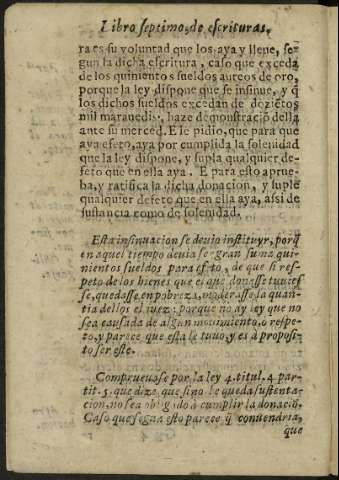 Libro septimo, de escrituras,
ra es su voluntad que los aya y lleue, se-
gun la dicha escritura, caso que exceda
de los quinientos sueldos aureos de oro,
porque la ley dispone que se insinue, y q̃
los dichos sueldos excedan de
mil marauedis, haze demonstraciõ della
ante su merced. E le pidio, que para que
aya efeto, aya por cumplida la solenidad
que la ley dispone, y supla qualquier de-
feto que en ella aya. E para esto aprue-
ba, y ratifica la dicha donacion, y suple
qualquier defeto que en ella aya, assi de
sustancia como de solenidad.
Esta insinuacion se deuio instituyr, porq̃
en aquel tiempo deuia ser gran suma qui-
nientos sueldos para efeto, de que si res-
peto de los bienes que el que donasse tuuies
se, quedasse en pobreza, moderasse la quan-
tia dellos el juez: porque no ay ley que no
sea causada de algun mouimiento, o respe-
to, y parece que esta le tuuo, y es a proposi-
to ser este.
Comprueuase por la ley 4. titul. 4 par-
tit. 5. que dize, que sino le queda sustenta-
cion, no sea obligido a cumplir la donaciõ.
Caso que segun esto parece q̃ conuendria,
que